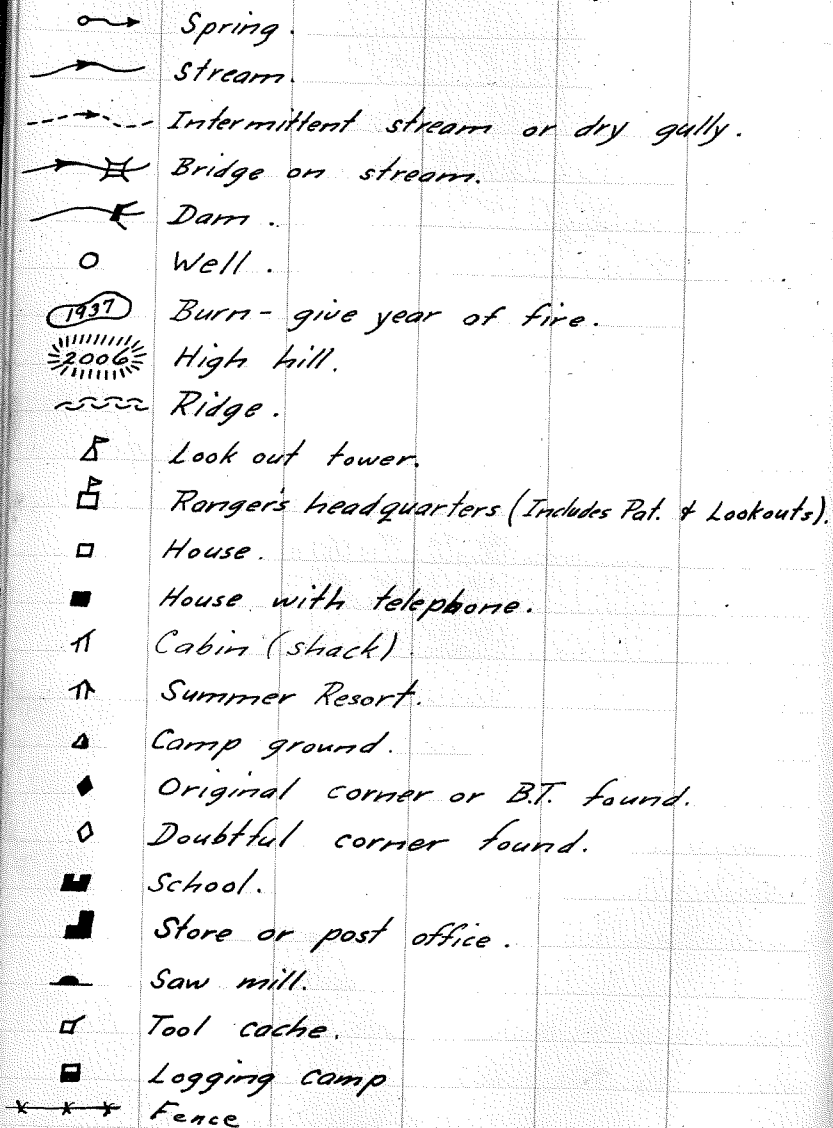 Spring.
Stream.
Intermittent stream or dry gully.
Bridge on stream.
Dam.
Well.
1937 Burn - give year of fire.
2006 High hill.
Ridge.
Look out tower.
Ranger's headquarters (Includes Pat. & Lookouts).
House.
House with telephone.
Cabin (shack).
Summer Resort.
Camp ground.
Original corner or B.T. found.
Doubtful corner found.
School.
Store or post office.
Saw mill.
Tool cache.
Logging camp
Fence